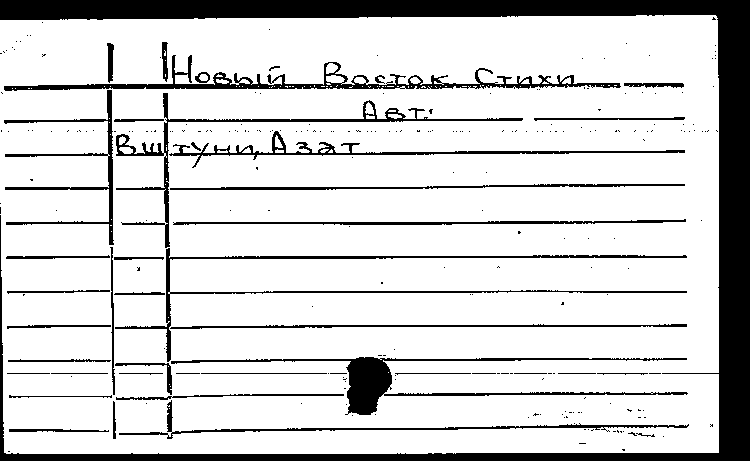 Новый Восток. Стихи
Авт:
Вштуни, Азат